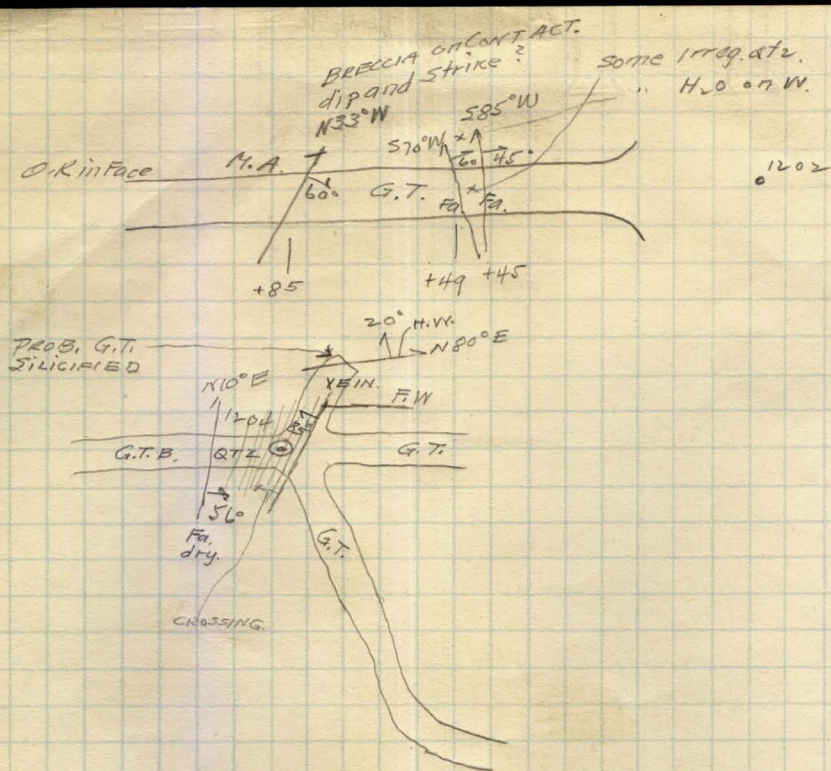 BRECCIA on CONTACT.
dip and strike ?
N33°W
some irreg. qtz.
" H2O on W.
S85°W
S70°W
O.K in Face
M.A.
60°
G.T.
60
45°
Fa.
Fa.
1202
+85
+49
+45
PROB. G.T.
SILICIFIED
20°
H.W.
N80°E
N10°E
VEIN.
F.W
1204
G.T.B.
QTZ
G.T.
56°
Fa.
dry.
G.T.
CROSSING.